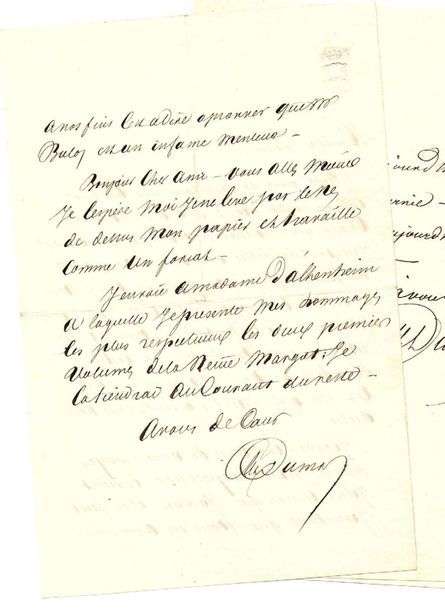 a nos fins C'est a dire a prouver que Mr
Buloz est un infame menteur –
Bonjour cher ami – vous allez mieux
Je l'espère moi je ne leve pas le nez
de dessus mon papier et travaille
comme un forcat –
J'envoie a madame d'alhenheim
a laquelle Je présente mes hommages
les plus respectueux les deux premiers
volumes de la Reine Margot. Je
la tiendrai au Courant du reste –
A vous de Cœur
Alex Dumas